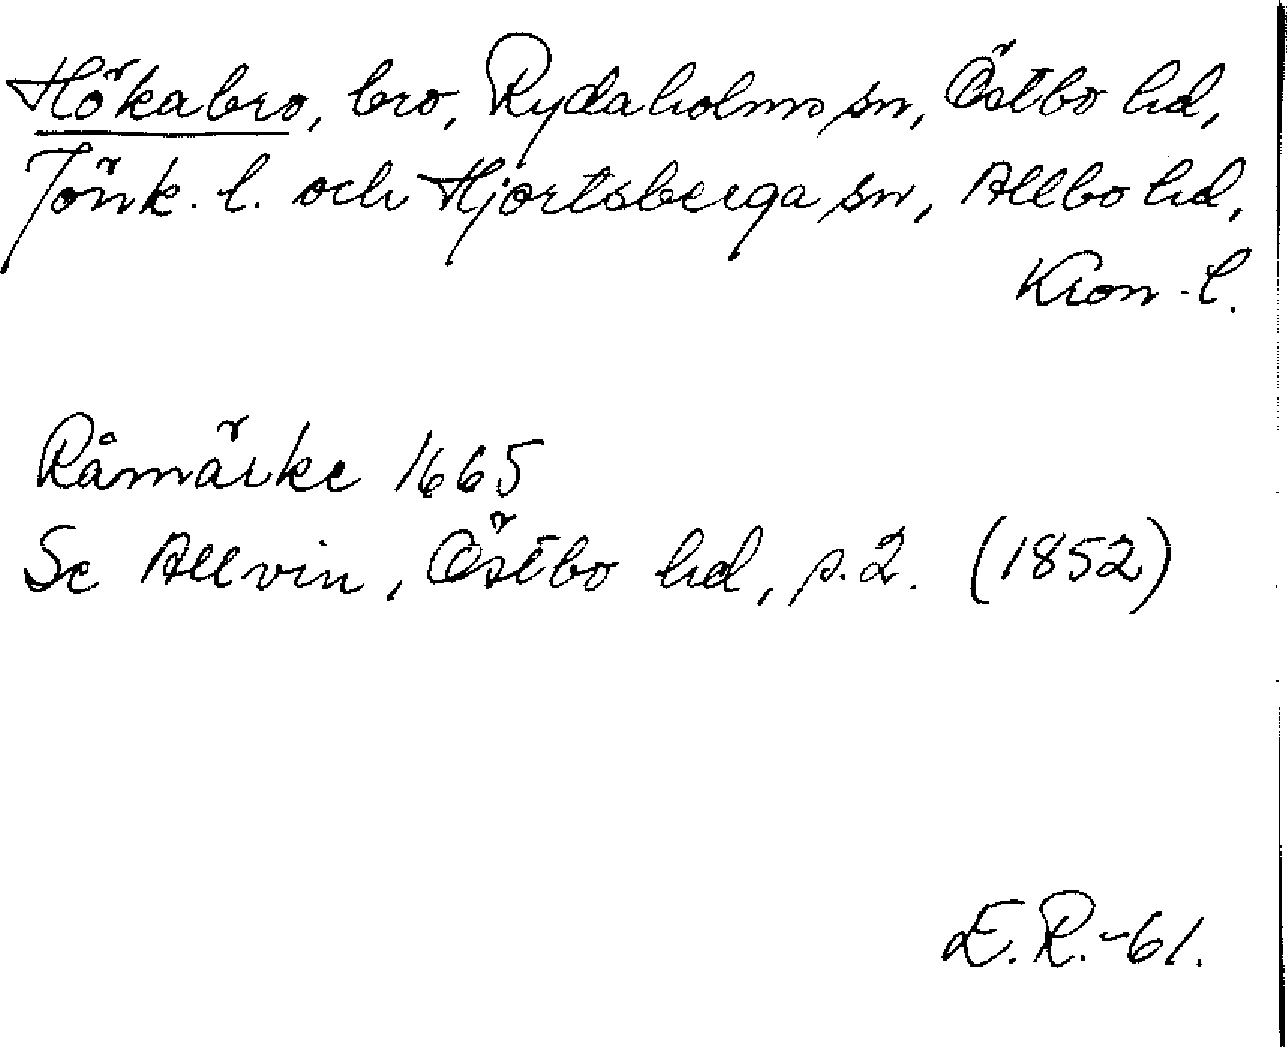 Hökabro, bro, Rydaholms sn, Östbo hd,
Jönk. l. och Hjortsberga sn, Allbo hd,
Kron. l.
Råmärke 1665
Se Allvin, Östbo hd, s. 2. (1852)
E. R. -61.